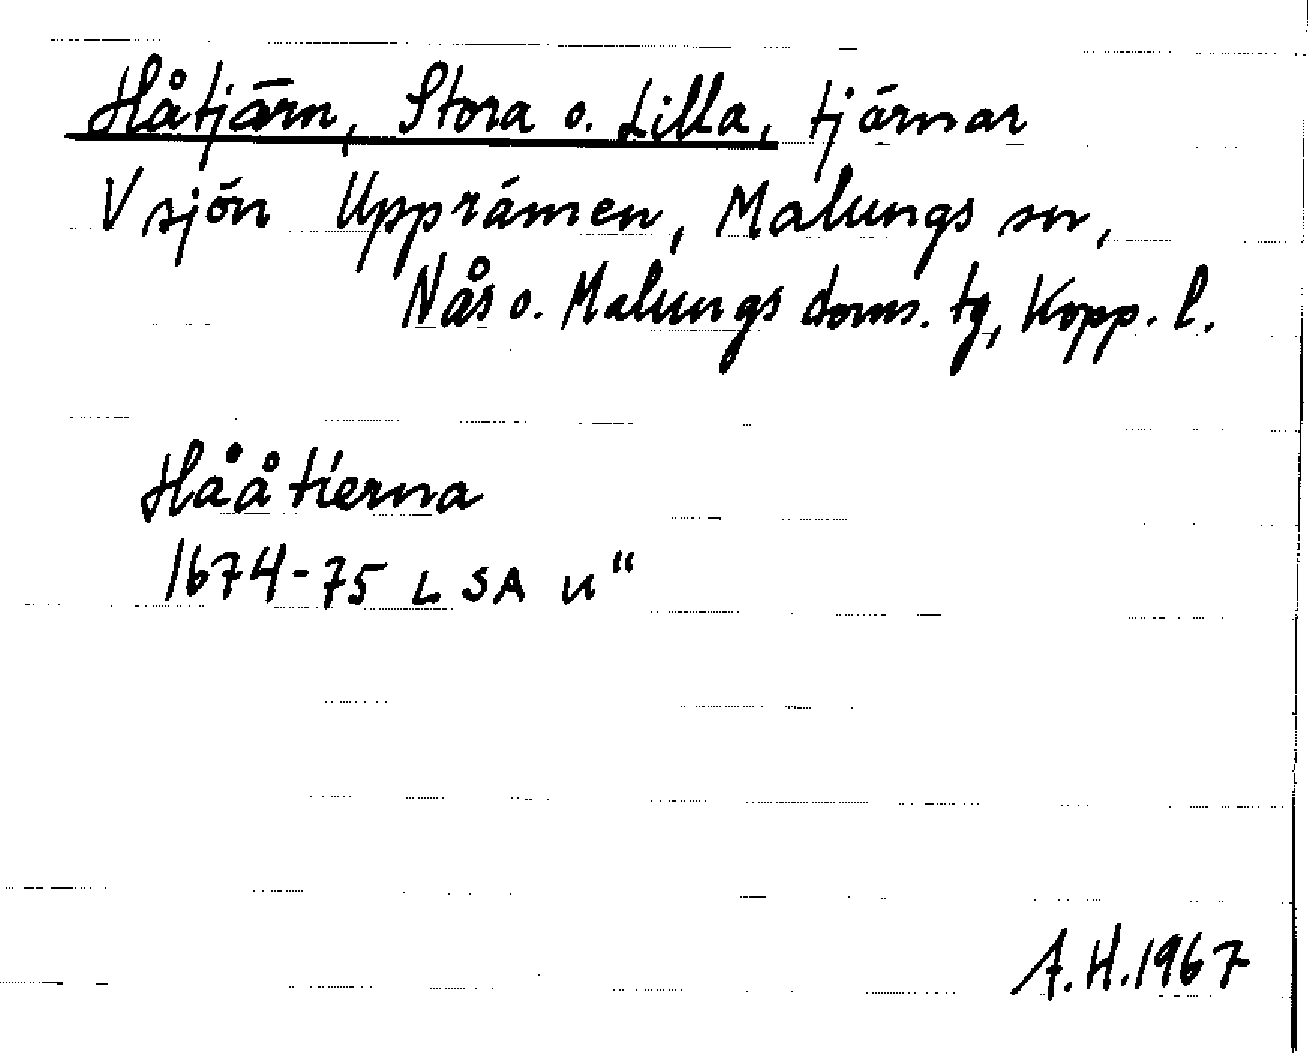 Håtjärn, Stora o. Lilla, tjärnar
V sjön Upprämen, Malungs sn,
Nås o. Malungs doms. tg, Kopp. l.
Hååtierna
1674-75 LSA n"
A.H. 1967